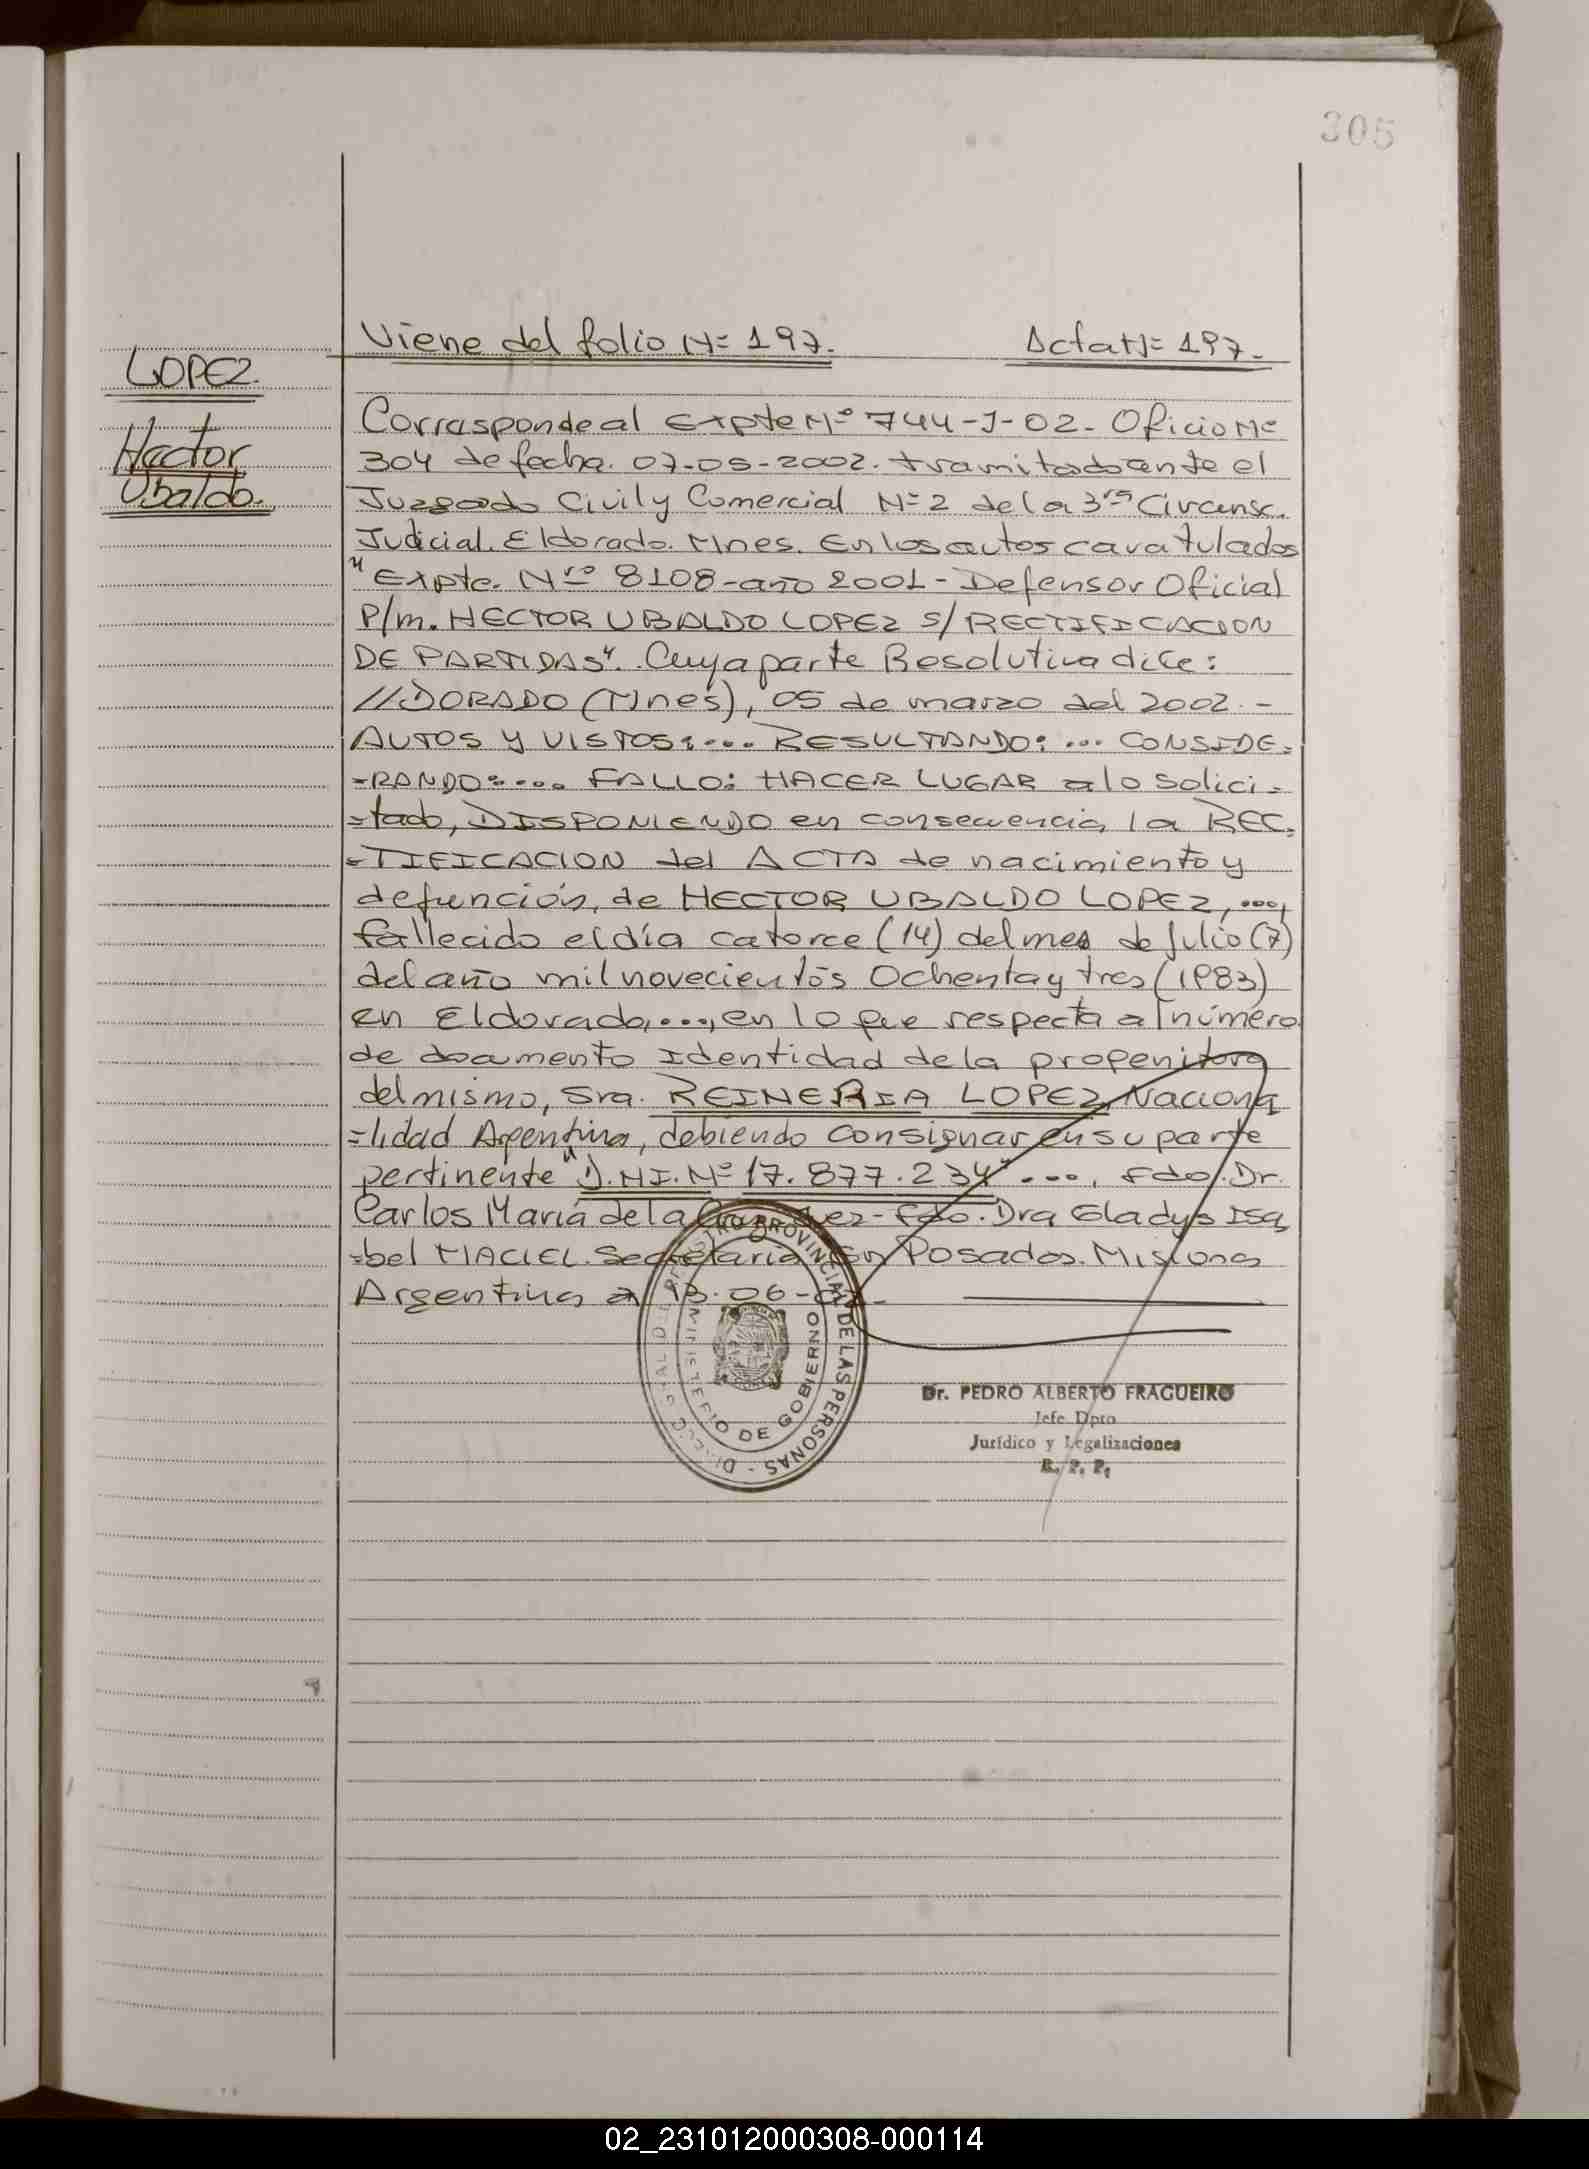 305
Viene del folio N= 197. Acta N= 197.-
LOPEZ.
Hector
Ubaldo.
Corresponde al Expte Nº 744-J-02- Oficio Nº
304 de fecha. 07-05-2002. tramitado ante el
Juzgado Civil y Comercial N= 2 de la 3ra Circunsc.
Judicial. Eldorado. Mnes. En los autos caratulados
"Expte. Nro 8108-año 2001- Defensor Oficial
P/m. HECTOR UBALDO LOPEZ S/ RECTIFICACION
DE PARTIDAS". Cuya parte Resolutiva dice:
//DORADO (Mnes), 05 de marzo del 2002.-
AUTOS Y VISTOS:... RESULTANDO: ... CONSIDE=
=RANDO:.... FALLO: HACER LUGAR a lo solici=
=tado, DISPONIENDO en consecuencia, la REC=
=TIFICACION del ACTA de nacimiento y
defunción, de HECTOR UBALDO LOPEZ, ...,
fallecido el día catorce (14) del mes de Julio (7)
del año mil novecientos Ochenta y tres (1983)
en Eldorado, ..., en lo que respecta al número
de documento Identidad de la progenitora
del mismo, Sra. REINERIA LOPEZ, Naciona
=lidad Argentina, debiendo consignar en su parte
pertinente "D.NI. Nº 17.877.234" .... Fdo. Dr.
Carlos María de la Juez- Fdo. Dra Gladys Isa
=bel MACIEL. Secretaria. En Posadas. Misiones
Argentina a 13-06-02-
REGISTRO PROVINCIAL DE LAS PERSONAS -
MINISTERIO DE GOBIERNO
Dr. PEDRO ALBERTO FRAGUEIRO
Jefe Dpto
Jurídico y Legalizaciones
R. P. P.
02_231012000308-000114